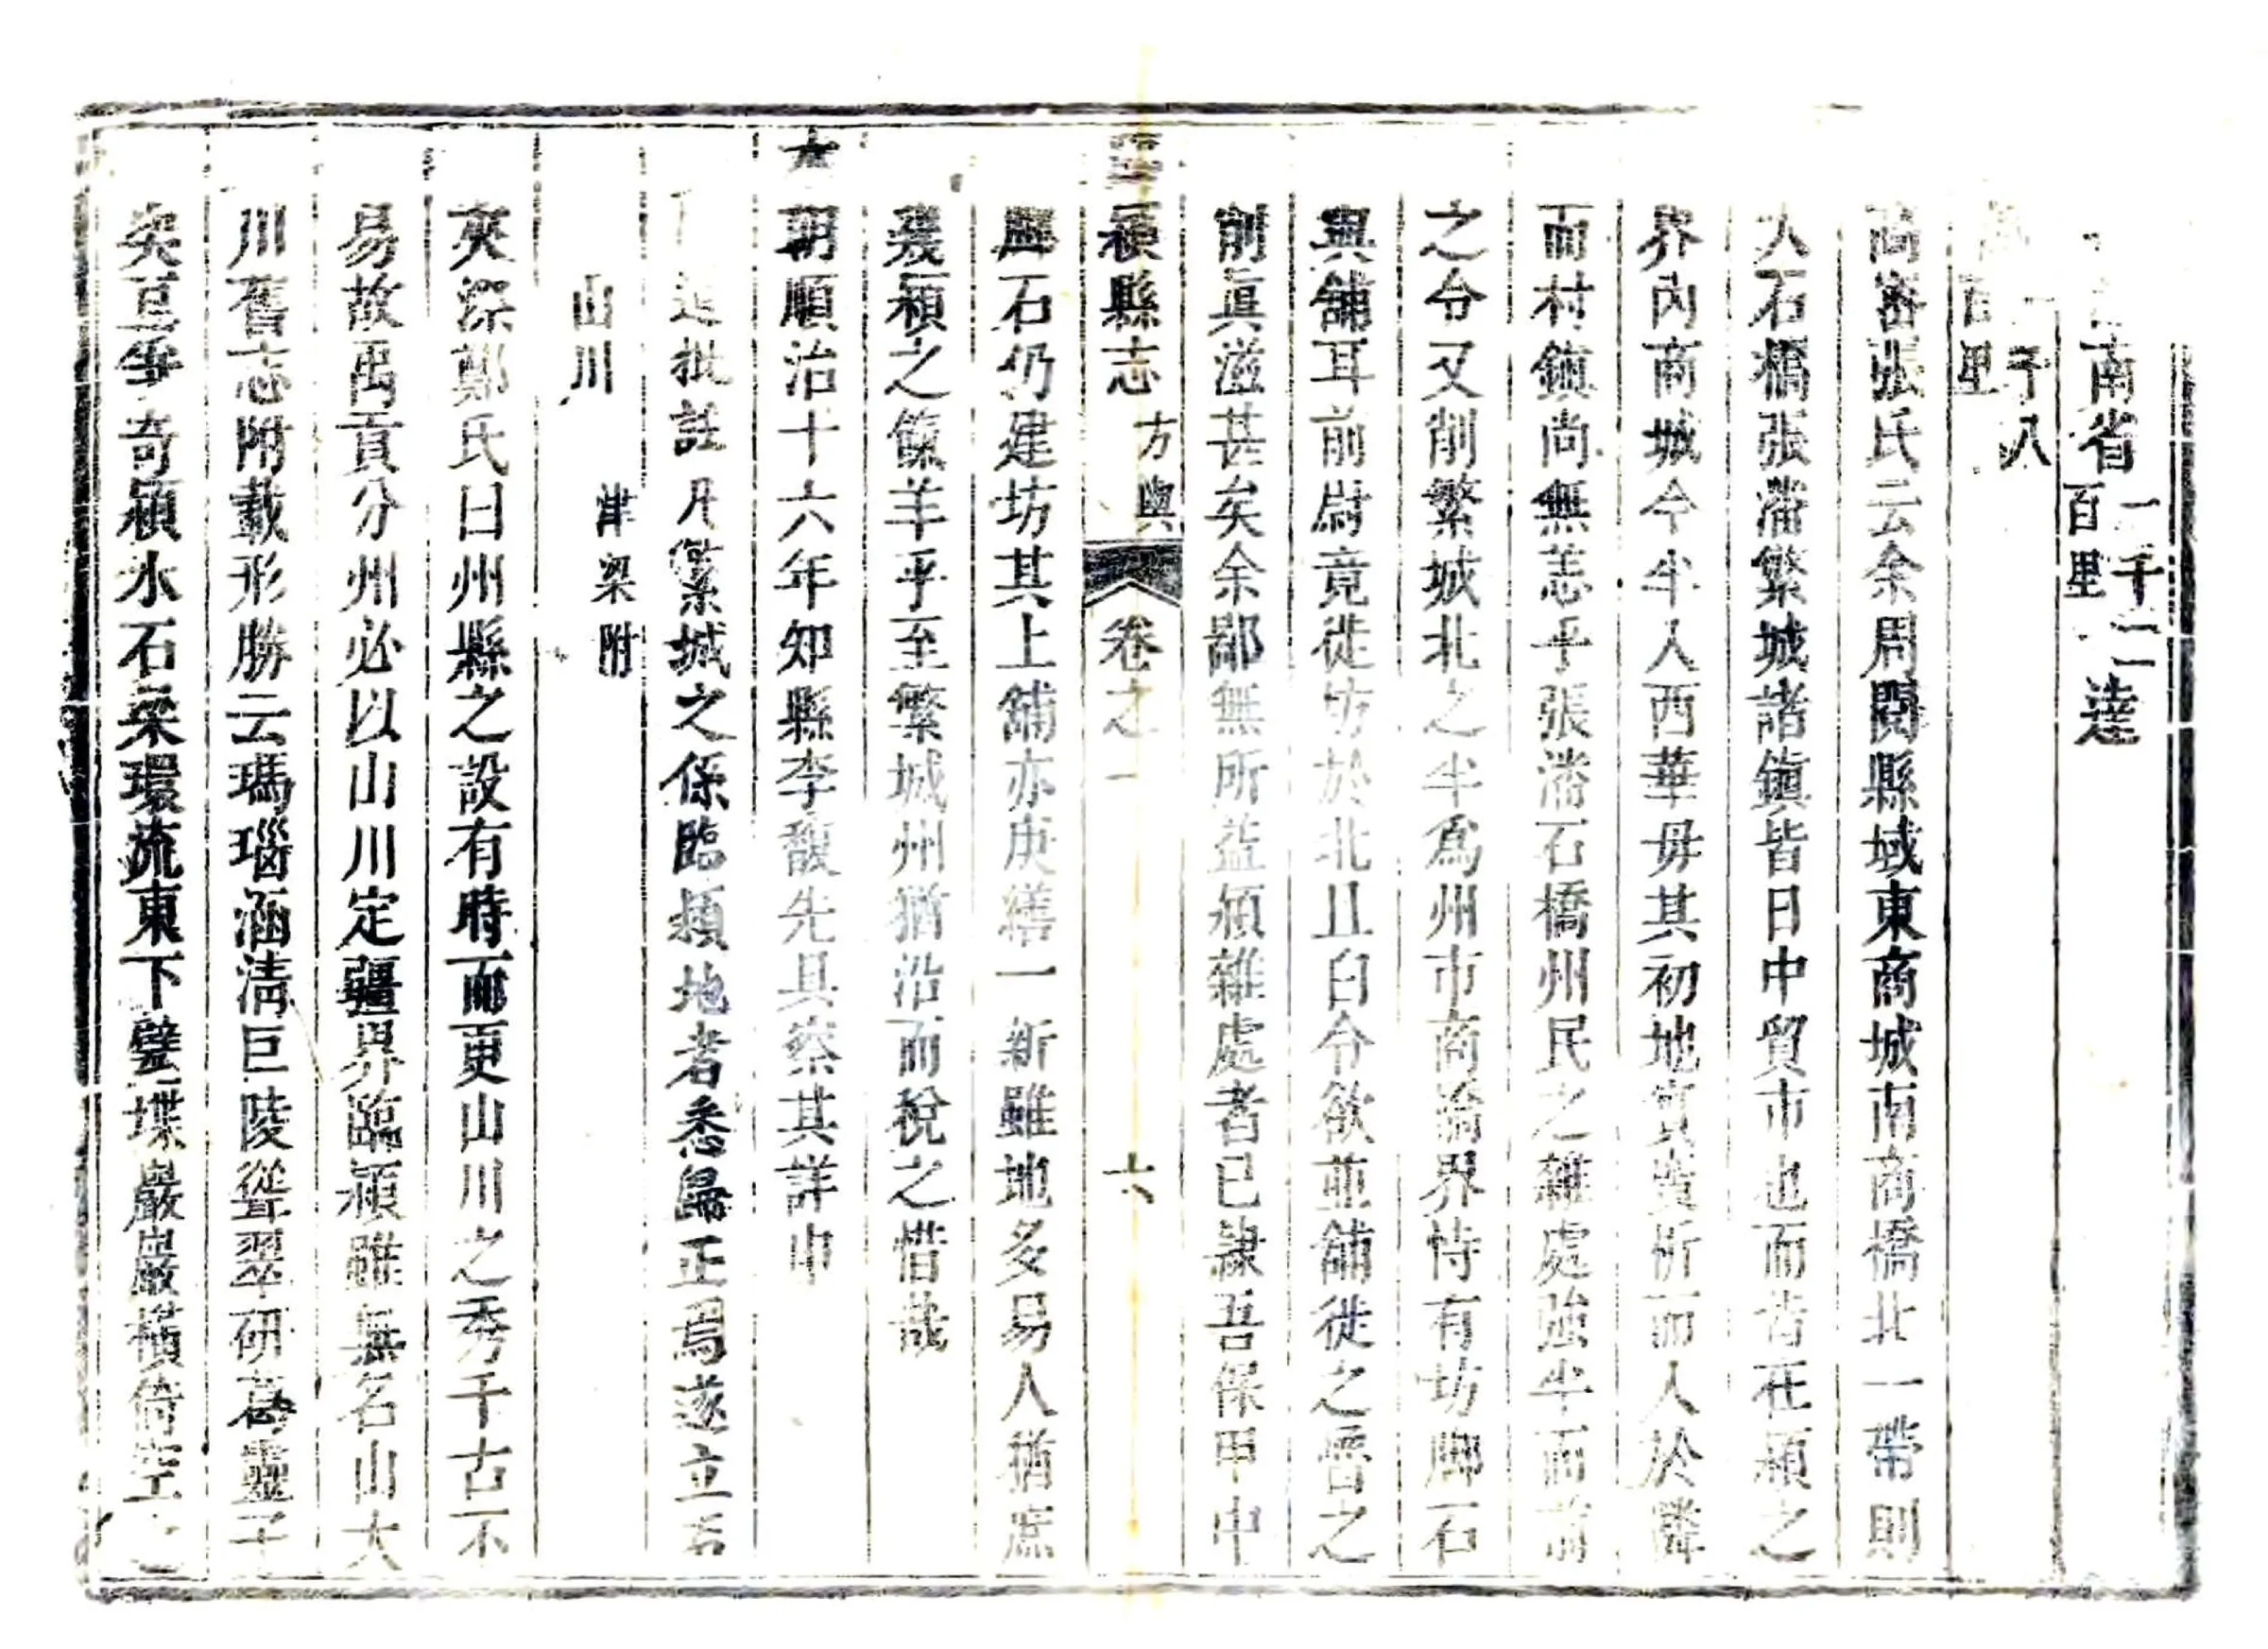 南省一千二百里達
一千八百里
高審張氏云余周閱縣域東商城南商橋北一帶則
入石橋張潘繁城諸鎮皆日中貿市也而皆在潁之
界內商城今半入西華毋其初地實賣析而入於隣
而村鎮尚無恙乎張潘石橋州民之雜處強半而前
之令又削繁城北之半爲州市商橋界恃有坊脚石
與舖耳前尉竟徙坊於北且白令欲並舖徙之嘗之
削眞滋甚矣余鄙無所益潁雜處者已隷吾保甲中
潁縣志 方輿 卷之一 六
興石仍建坊其上舖亦庚繕一新雖地多易人猶庶
幾潁之餼羊乎至繁城州猶沿而稅之惜哉
朝順治十六年知縣李馥先具察其詳申
批註凡繁城之係臨潁地者悉歸正焉遂立石
山川 津梁附
夾漈鄭氏曰州縣之設有時而更山川之秀千古不
易故禹貢分州必以山川定疆界臨潁雖無名山大
川舊志附載形勝云瑪瑙涵淸巨陵聳翠研葛靈子
矣亘爭奇潁水石梁環流東下甓堞巖巖橫倚空